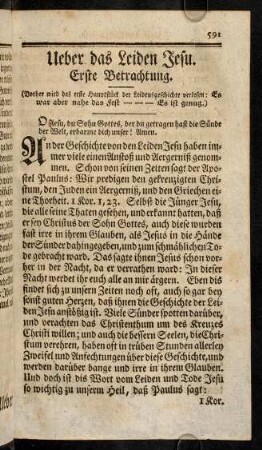 591
Ueber das Leiden Jesu.
Erste Betrachtung.
(Vorher wird das erste Hauptstück der Leidensgeschichte verlesen: Es
war aber nahe das Fest — — — Es ist genug.)
O Jesu, du Sohn Gottes, der du getragen hast die Sünde
der Welt, erbarme dich unser! Amen.
An der Geschichte von den Leiden Jesu haben im-
mer viele einen Anstoß und Aergerniß genom-
men. Schon von seinen Zeiten sagt der Apo-
stel Paulus: Wir predigen den gekreuzigten Chri-
stum, den Juden ein Aergerniß, und den Griechen ei-
ne Thorheit. 1 Kor. 1, 23. Selbst die Jünger Jesu,
die alle seine Thaten gesehen, und erkannt hatten, daß
er sey Christus der Sohn Gottes, auch diese wurden
fast irre in ihrem Glauben, als Jesus in die Hände
der Sünder dahingegeben, und zum schmählichen To-
de gebracht ward. Das sagte ihnen Jesus schon vor-
her in der Nacht, da er verrathen ward: In dieser
Nacht werdet ihr euch alle an mir ärgern. Eben dis
findet sich zu unsern Zeiten noch oft, auch so gar bey
sonst guten Herzen, daß ihnen die Geschichte der Lei-
den Jesu anstößig ist. Viele Sünder spotten darüber,
und verachten das Christenthum um des Kreuzes
Christi willen; und auch die bessern Seelen, die Chri-
stum verehren, haben oft in trüben Stunden allerley
Zweifel und Anfechtungen über diese Geschichte, und
werden darüber bange und irre in ihrem Glauben.
Und doch ist das Wort vom Leiden und Tode Jesu
so wichtig zu unserm Heil, daß Paulus sagt:
1 Kor.